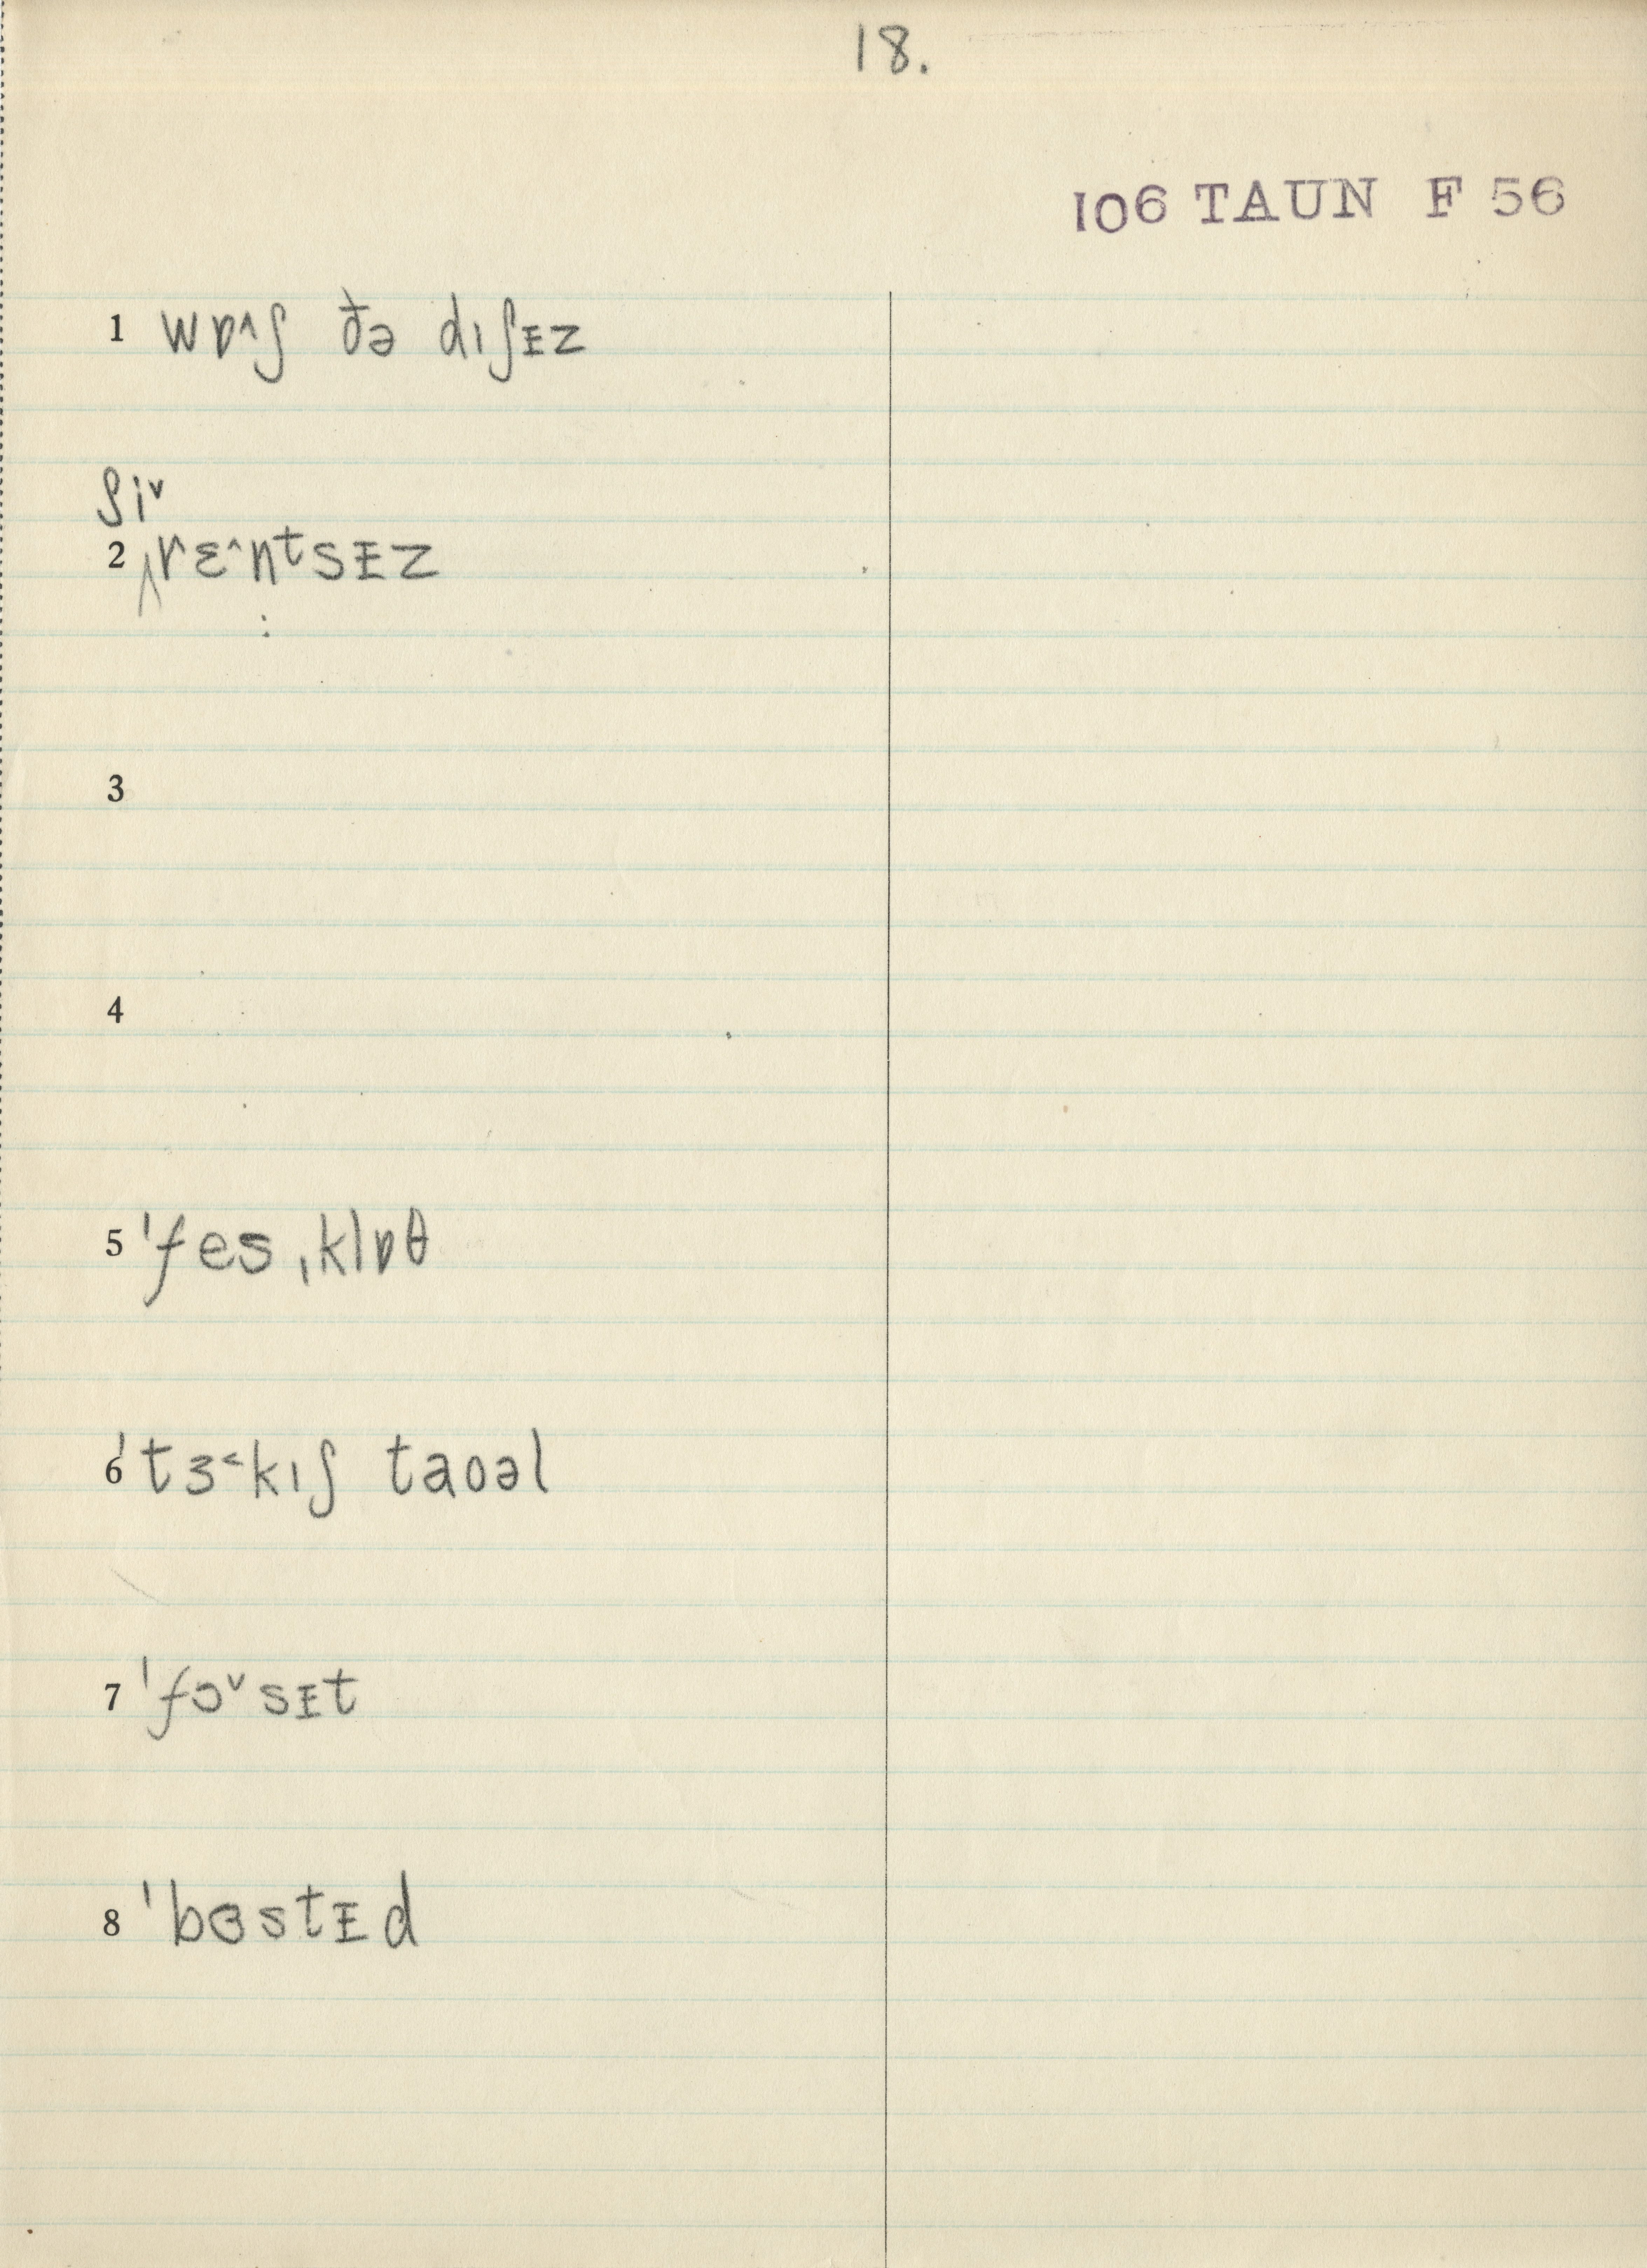 18.
106 TAUN F 56
1 wɒ˄ʃ ðə dɪʃᵻz
ʃi˅
2 rɛ˄ntsᵻz
3
4
5 ˈfes ˌklɒθ
6 ˈtɜ˂kɪʃ taʊəl
7 ˈfɔ˅sᵻt
8 ˈbɞstᵻd